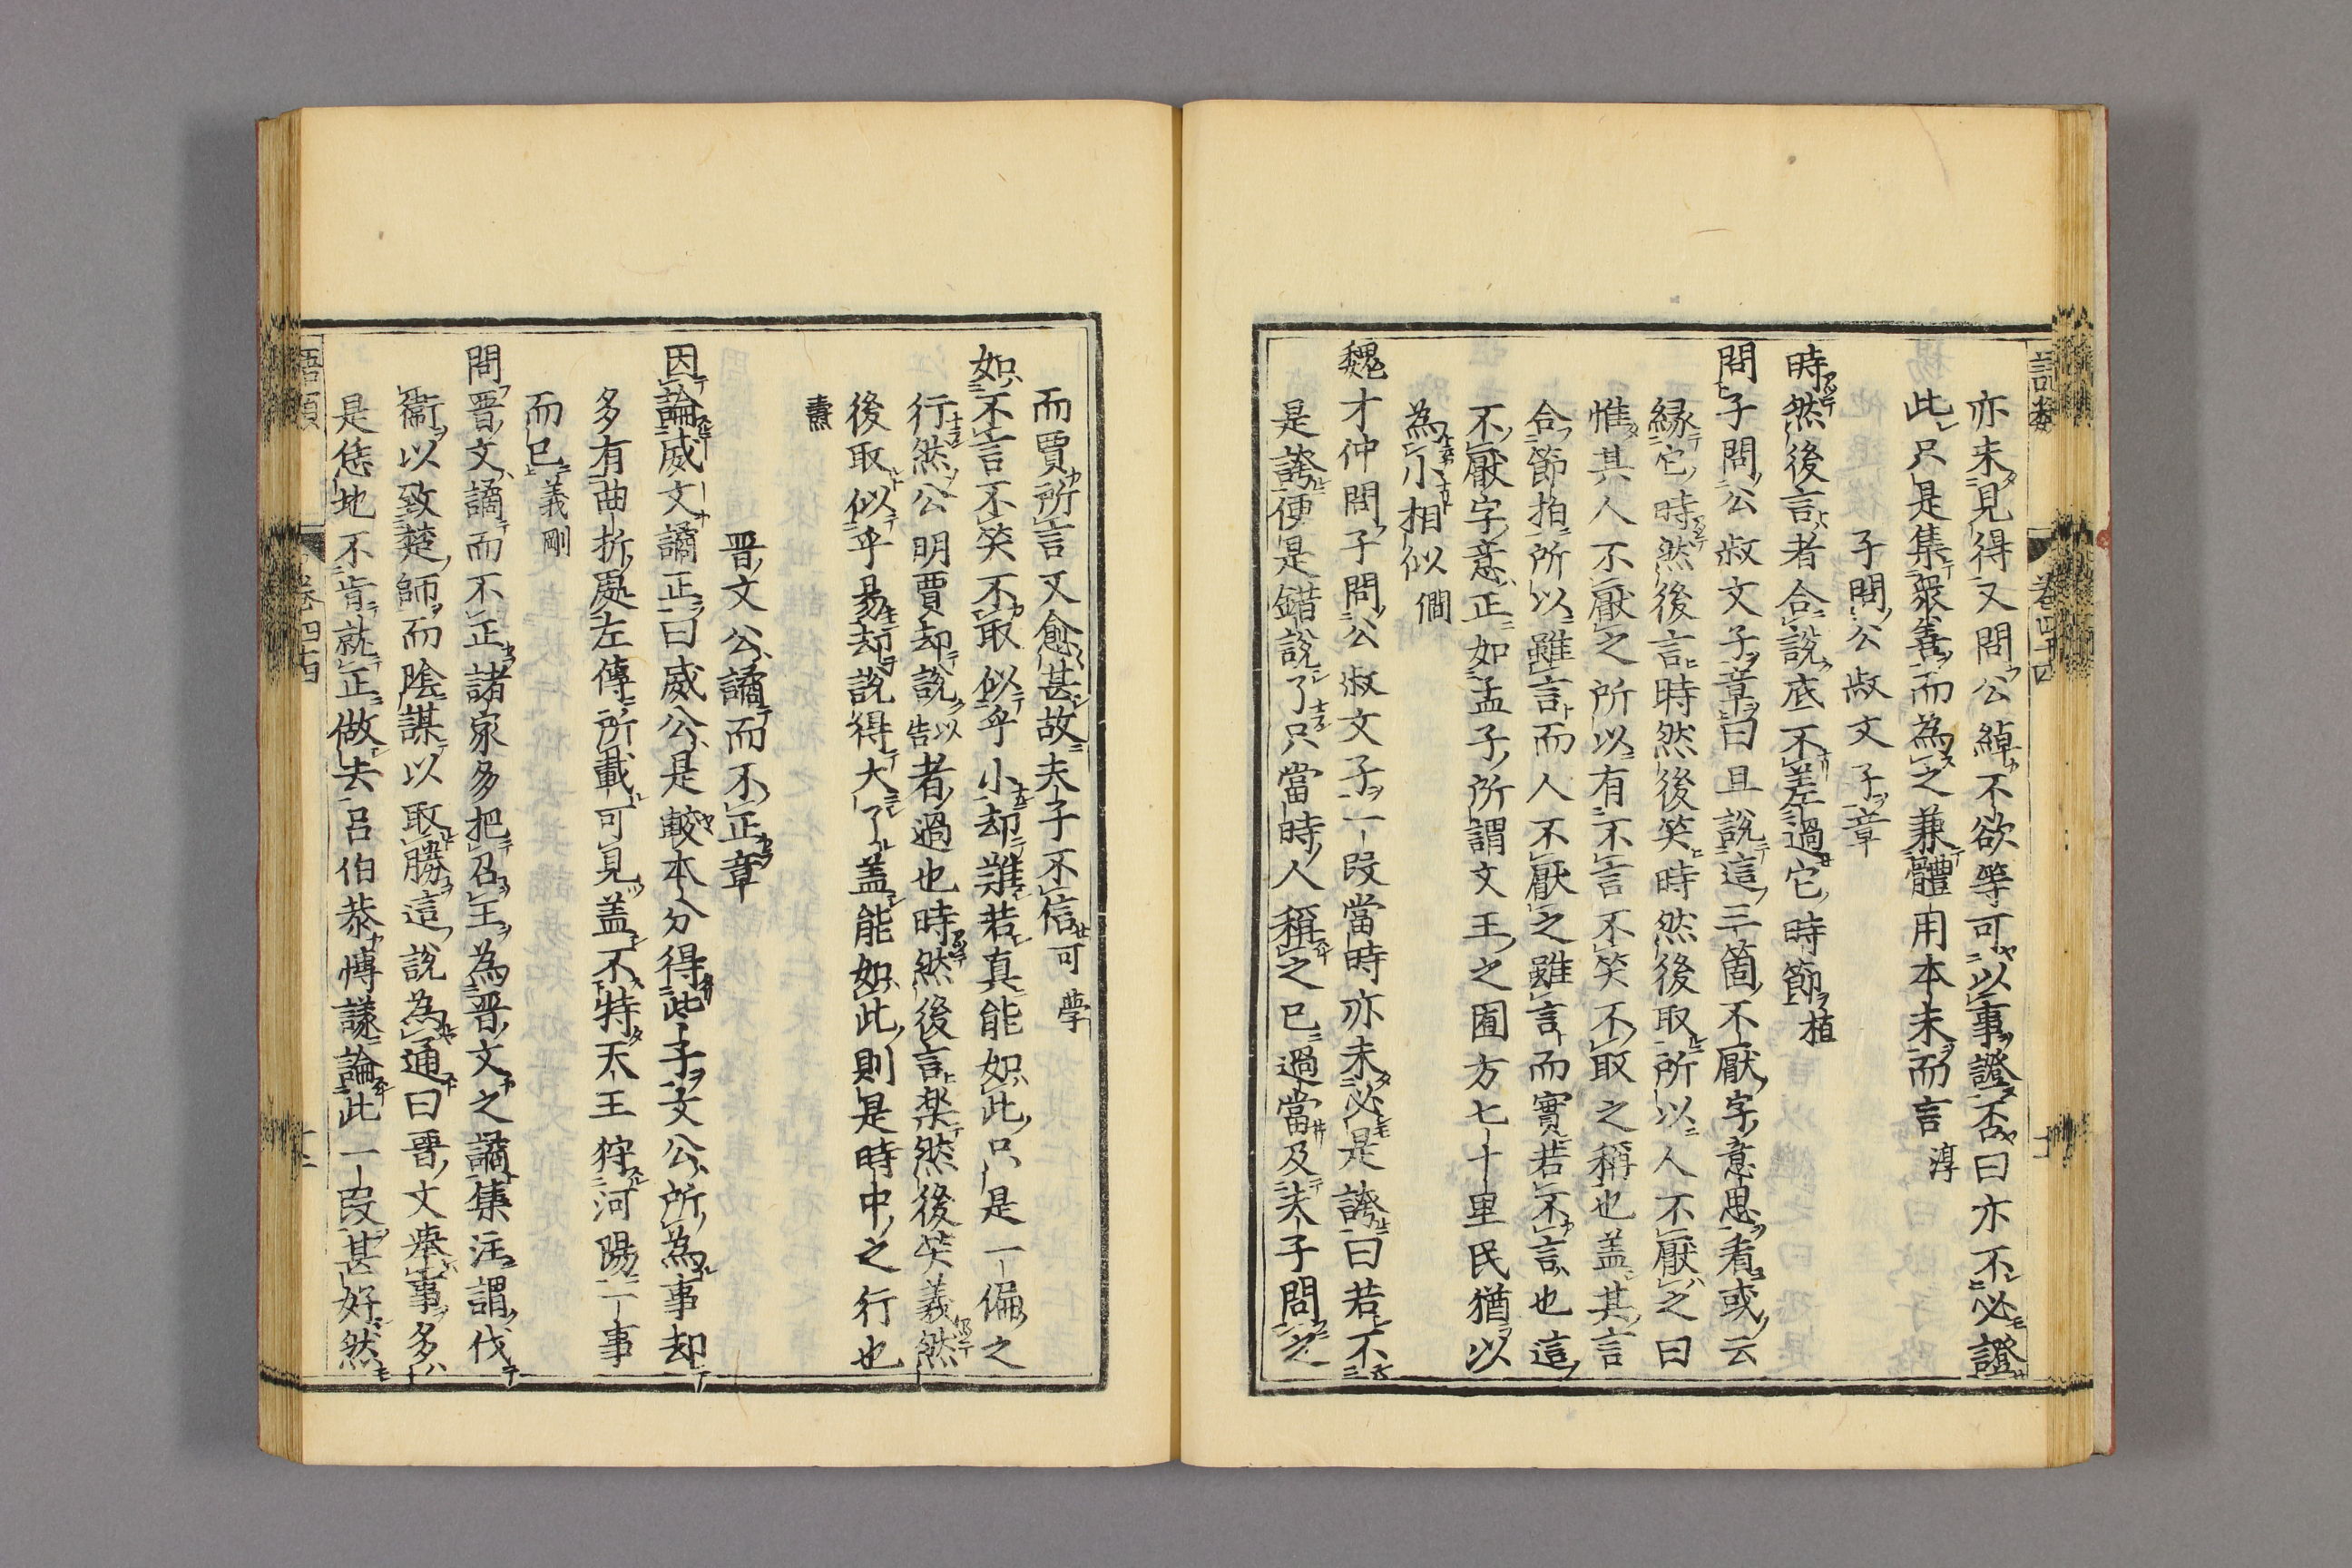 亦未見得又問公綽不欲等可以事證否曰亦不必證
此只是集衆善而為之兼體用本末而言 淳
子問公叔文子章
時然後言者合說底不差過它時節 植
問子問公叔文子章曰且說這三箇不厭字意思看或云
緣它時然後言時然後笑時然後取所以人不厭之曰
惟其人不厭之所以有不言不笑不取之稱也盖其言
合節拍所以雖言而人不厭之雖言而實若不言也這
不厭字意正如孟子所謂文王之囿方七十里民猶以
為小相似 僩
魏才仲問子問公叔文子一段當時亦未必是誇曰若不
是誇便是錯說了只當時人稱之已過當及夫子問之
而賈所言又愈甚故夫子不信 可學
如不言不笑不取似乎小却難若真能如此只是一偏之
行然公明賈却說以告者過也時然後言楽然後笑義然
後取似乎易却說得大了盖能如此則是時中之行也
燾
晋文公譎而不正章
因論威文譎正曰威公是較本分得些子文公所為事却
多有曲折處左傳所載可見盖不特天王狩河陽一事
而已 義剛
問晋文譎而不正諸家多把召王為晋文之譎集注謂伐
衞以致楚師而陰謀以取勝這說為通曰晋文舉事多
是恁地不肯就正做去呂伯恭博議論此一段甚好然
語類
卷四十四